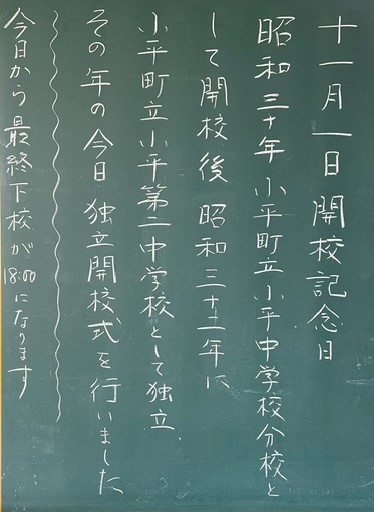 十一月一日開校記念日
昭和三十年小平町立小平中学校分校と
して開校後昭和三十二年に
小平町立小平第二中学校として独立
その年の今日独立開校式を行いました
今日から最終下校が18:00になります